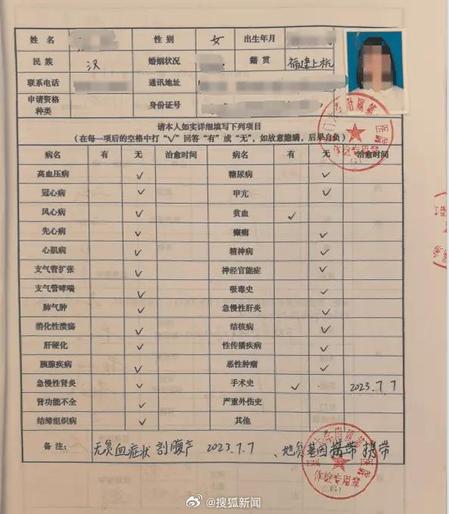 姓名 性别 女 出生年月
民族 汉 婚姻状况 籍贯 福建上杭
联系电话 通讯地址
申请资格种类 身份证号
请本人如实详细填写下列项目
（在每一项后的空格中打“√”回答“有”或“无”，如故意隐瞒，后果自负）
病名 有 无 治愈时间 病名 有 无 治愈时间
高血压病 √ 糖尿病 √
冠心病 √ 甲亢 √
风心病 √ 贫血 √
先心病 √ 癫痫 √
心肌病 √ 精神病 √
支气管扩张 √ 神经官能症 √
支气管哮喘 √ 吸毒史 √
肺气肿 √ 急慢性肝炎 √
消化性溃疡 √ 结核病 √
肝硬化 √ 性传播疾病 √
胰腺疾病 √ 恶性肿瘤 √
急慢性肾炎 √ 手术史 √ 2023.7.7
肾功能不全 √ 严重外伤史
结缔组织病 √ 其他
备注： 无贫血症状 剖腹产 2023.7.7、地贫基因携带 携带
体检专用章
@搜狐新闻